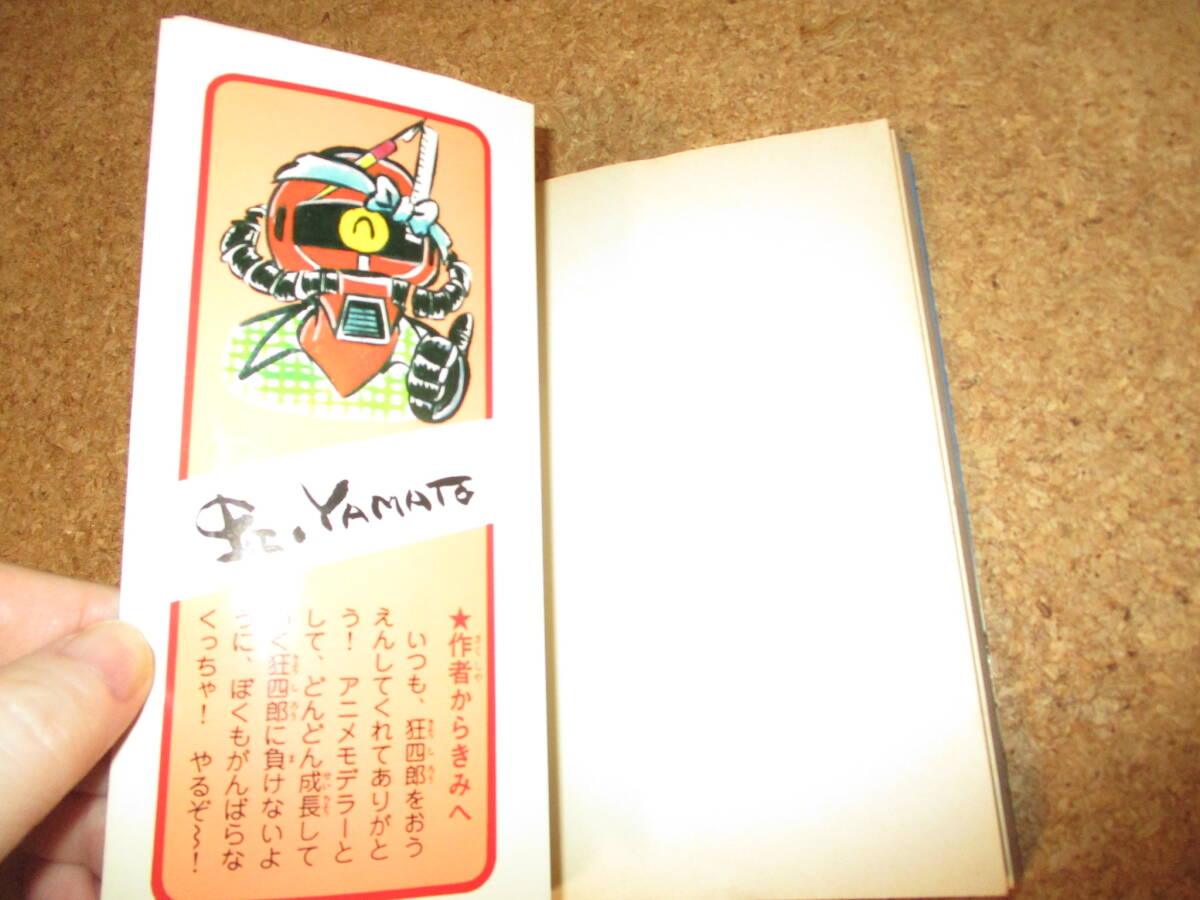 虹.YAMATO
★作者からきみへ
いつも、狂四郎をおう
えんしてくれてありがと
う！ アニメモデラーと
して、どんどん成長して
く狂四郎に負けないよ
うに、ぼくもがんばらな
くっちゃ！ やるぞ〜！